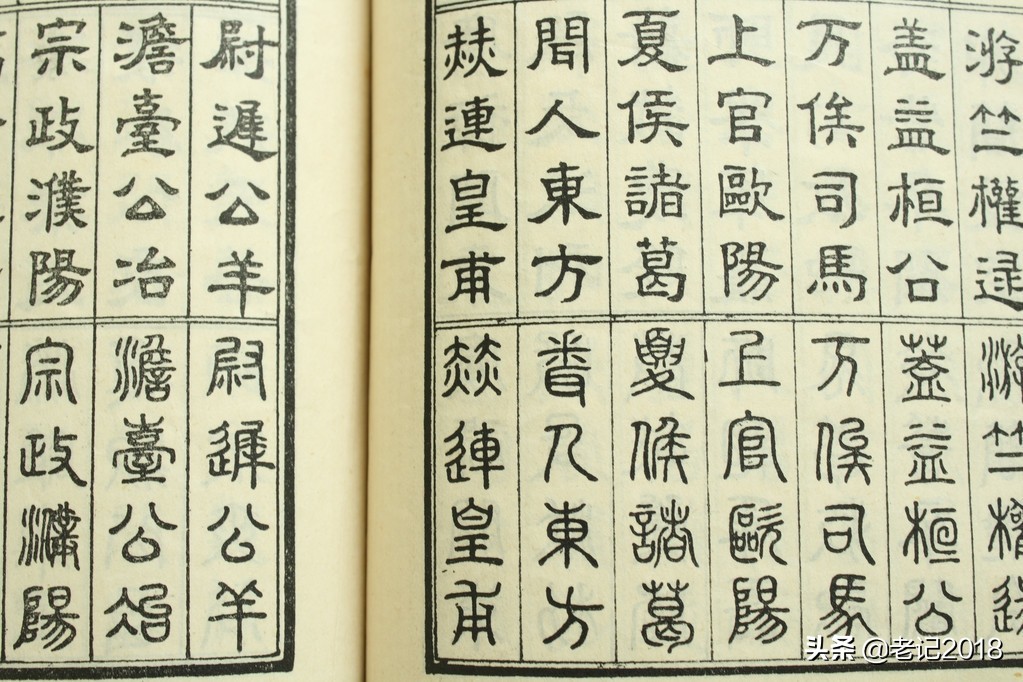 游竺權逯
盖益桓公
万俟司馬
上官歐陽
夏侯諸葛
聞人東方
赫連皇甫
游竺權逯
蓋益桓公
万俟司馬
上官歐陽
夏侯諸葛
聞人東方
赫連皇甫
尉遲公羊
澹臺公冶
宗政濮陽
尉遲公羊
澹臺公冶
宗政濮陽
头条 @老记2018